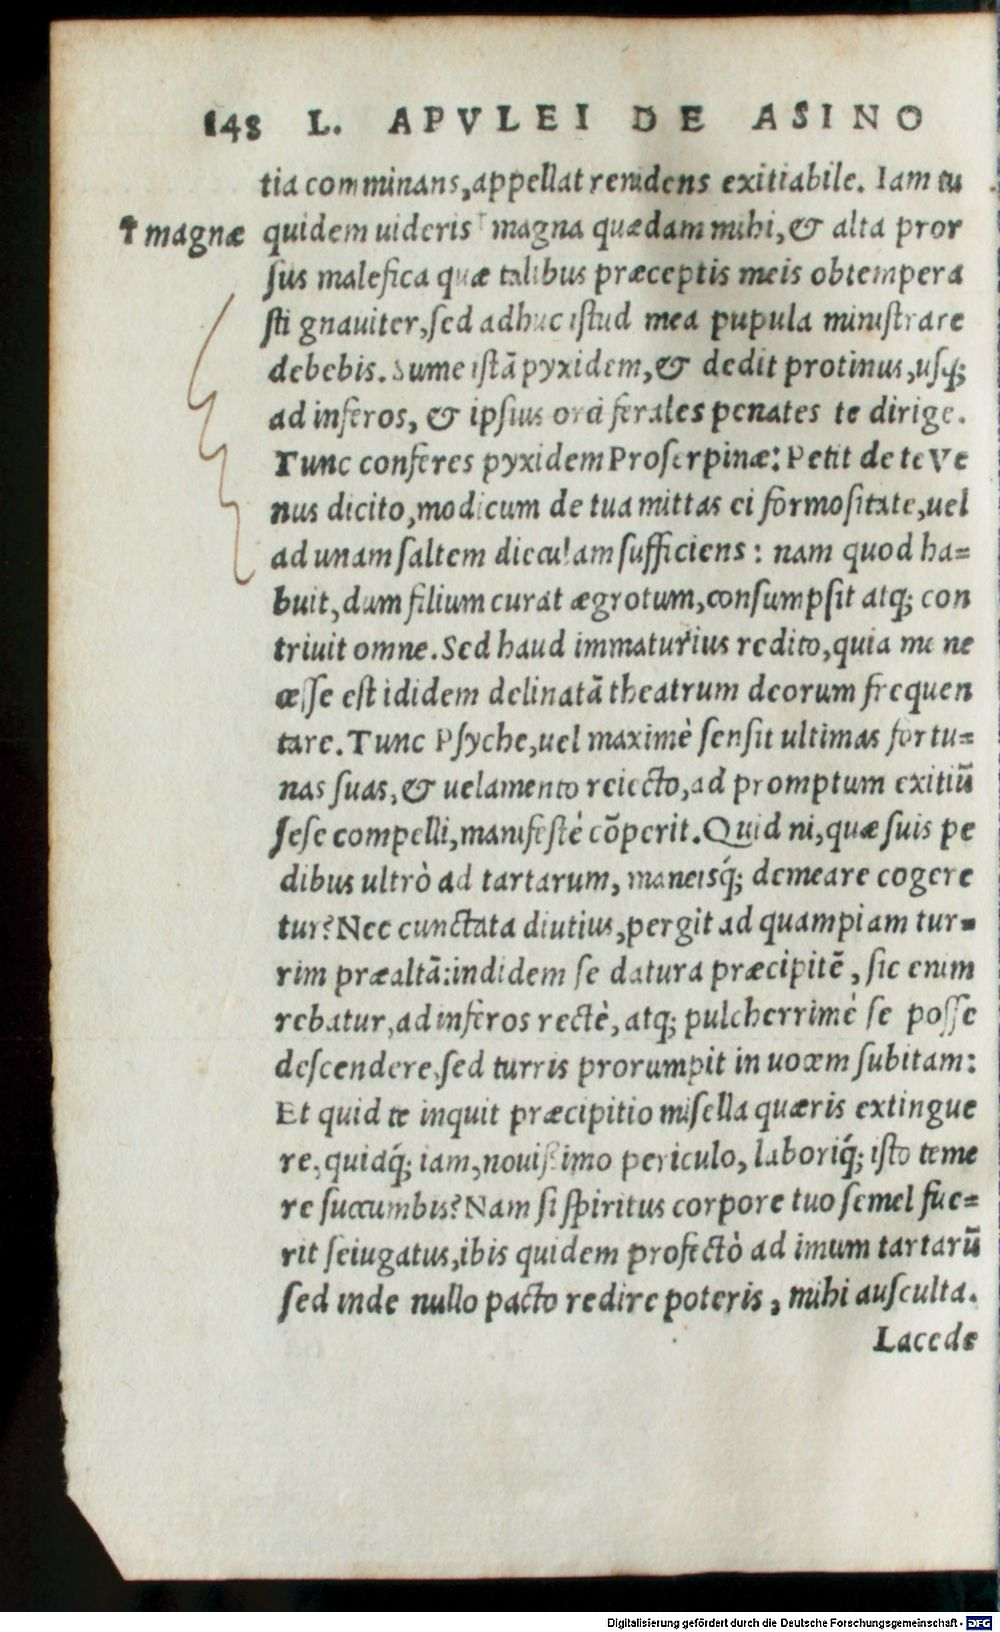 148 L. APVLEI DE ASINO
tia comminans, appellat renidens exitiabile. Iam tu
† magnæ quidem uideris † magna quædam mihi, & alta pror
sus malefica quæ talibus præceptis meis obtempera
sti gnauiter, sed adhuc istud mea pupula ministrare
debebis. Sume istā pyxidem, & dedit protinus, usq;
ad inferos, & ipsius orci ferales penates te dirige.
Tunc conferes pyxidem Proserpinæ: Petit de te Ve
nus dicito, modicum de tua mittas ei formositate, uel
ad unam saltem dieculam sufficiens: nam quod ha=
buit, dum filium curat ægrotum, consumpsit atq; con
triuit omne. Sed haud immaturius redito, quia me ne
cesse est ididem delinatā theatrum deorum frequen
tare. Tunc Psyche, uel maximè sensit ultimas fortu=
nas suas, & uelamento reiecto, ad promptum exitiū
sese compelli, manifestè cōperit. Quid ni, quæ suis pe
dibus ultrò ad tartarum, maneisq́; demeare cogere
tur? Nec cunctata diutius, pergit ad quampiam tur=
rim præaltā: indidem se datura præcipitē, sic enim
rebatur, ad inferos rectè, atq; pulcherrimè se posse
descendere, sed turris prorumpit in uocem subitam:
Et quid te inquit præcipitio misella quæris extingue
re, quidq́; iam, nouissimo periculo, laboriq́; isto teme
re succumbis? Nam si spiritus corpore tuo semel fue=
rit seiugatus, ibis quidem profectò ad imum tartarū
sed inde nullo pacto redire poteris, mihi ausculta.
Lacedæ
Digitalisierung gefördert durch die Deutsche Forschungsgemeinschaft - DFG